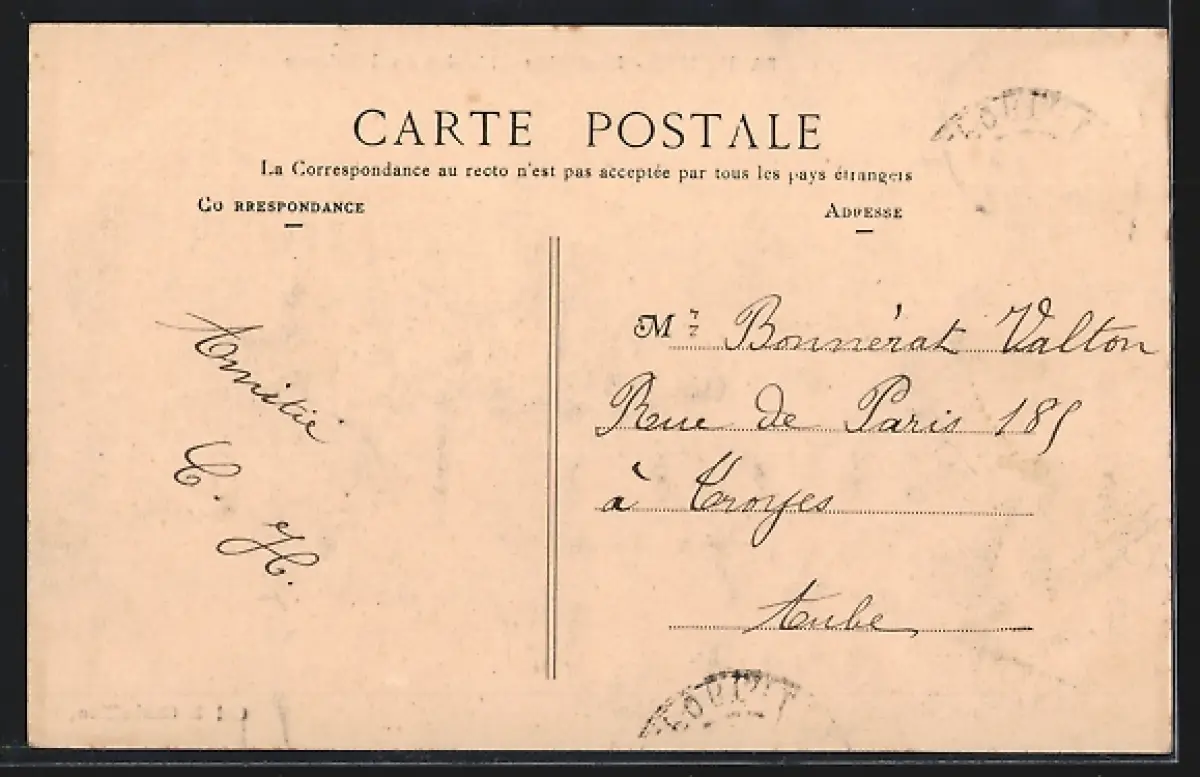 CARTE POSTALE
La Correspondance au recto n'est pas acceptée par tous les pays étrangers
CORRESPONDANCE
ADRESSE
Amitié
C. H.
M Bonnérat Valton
Rue de Paris 185
à Troyes
Aube